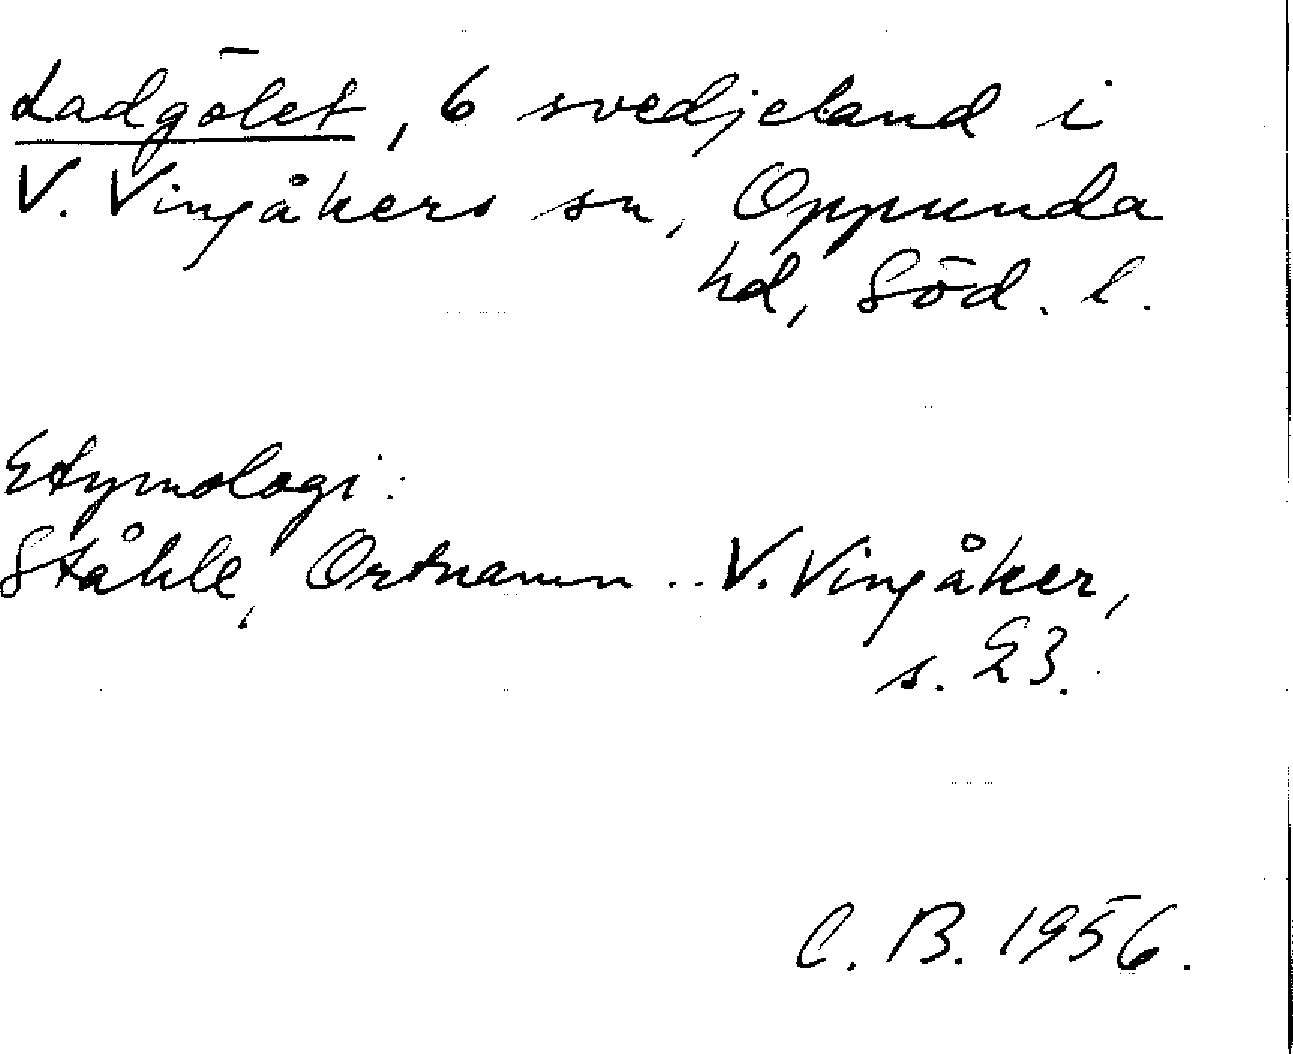 Ladgölet, 6 svedjeland i
V. Vingåkers sn, Oppunda
hd, Söd. l.
Etymologi:
Ståhle, Ortnamn .. V. Vingåker,
s. 23.
C. B. 1956.